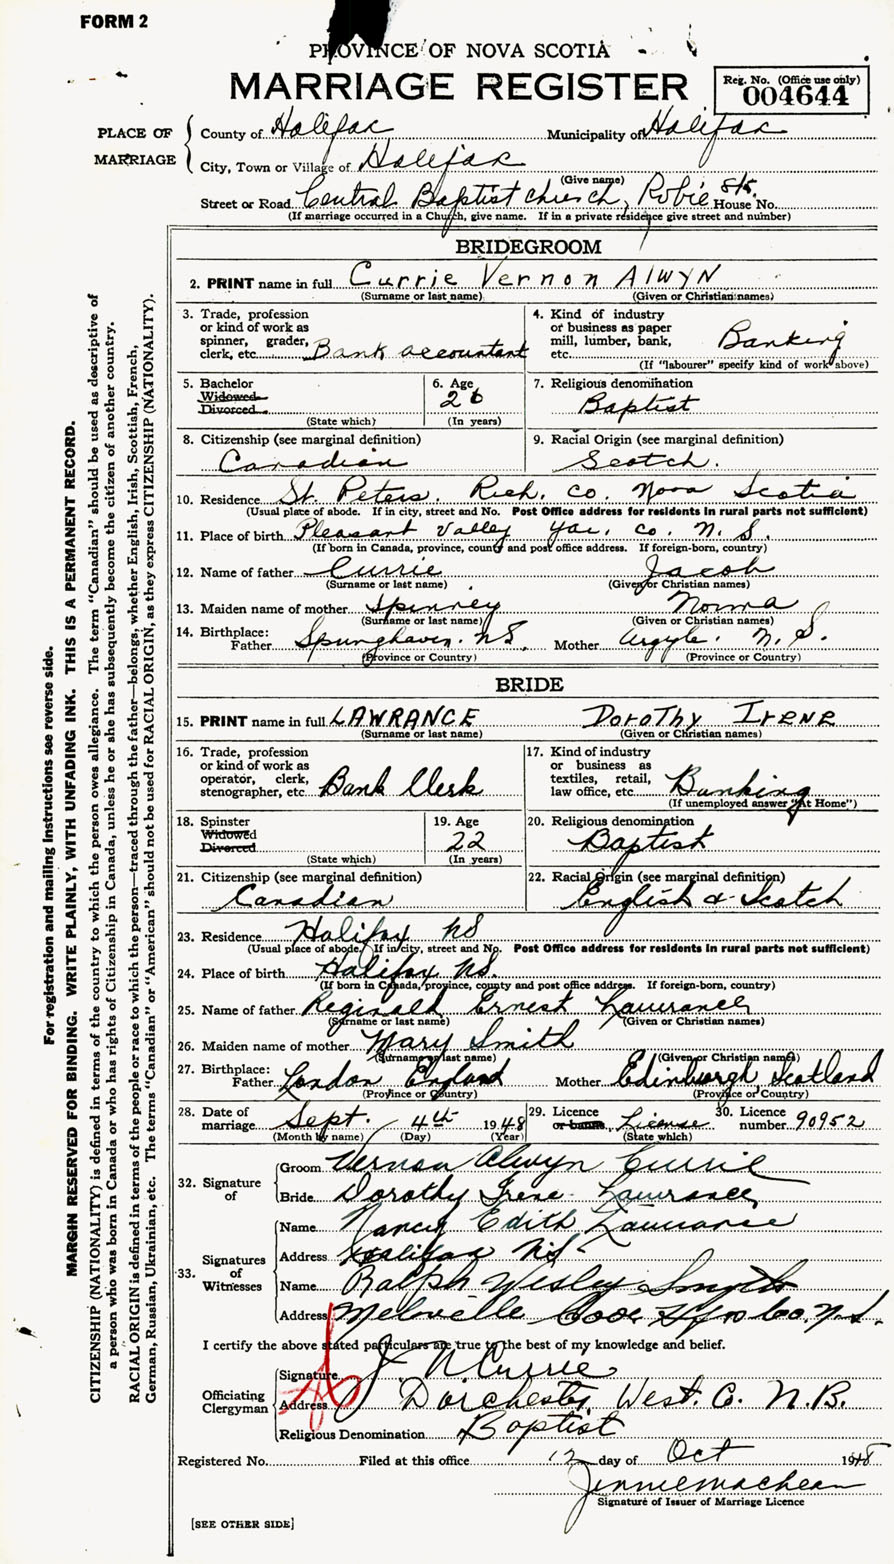 FORM 2
PROVINCE OF NOVA SCOTIA
MARRIAGE REGISTER
Reg. No. (Office use only)
004644
PLACE OF MARRIAGE
County of Halifax Municipality of Halifax
City, Town or Village of Halifax
(Give name)
Street or Road Central Baptist Church, Robie St. House No.
(If marriage occurred in a Church, give name. If in a private residence give street and number)
BRIDEGROOM
2. PRINT name in full Currie Vernon Alwyn
(Surname or last name) (Given or Christian names)
3. Trade, profession or kind of work as spinner, grader, clerk, etc. Bank accountant
4. Kind of industry or business as paper mill, lumber, bank, etc. Banking
(If "labourer" specify kind of work above)
5. Bachelor Widowed Divorced
(State which)
6. Age 26
(In years)
7. Religious denomination
Baptist
8. Citizenship (see marginal definition)
Canadian
9. Racial Origin (see marginal definition)
Scotch.
10. Residence St. Peters. Rich. Co. Nova Scotia
(Usual place of abode. If in city, street and No. Post Office address for residents in rural parts not sufficient)
11. Place of birth Pleasant Valley Yar. Co. N. S.
(If born in Canada, province, county and post office address. If foreign-born, country)
12. Name of father Currie Jacob
(Surname or last name) (Given or Christian names)
13. Maiden name of mother Spinney Norma
(Surname or last name) (Given or Christian names)
14. Birthplace: Father N.S. Mother Argyle. N. S.
(Province or Country) (Province or Country)
BRIDE
15. PRINT name in full LAWRANCE Dorothy Irene
(Surname or last name) (Given or Christian names)
16. Trade, profession or kind of work as operator, clerk, stenographer, etc. Bank Clerk
17. Kind of industry or business as textiles, retail, law office, etc. Banking
(If unemployed answer "At Home")
18. Spinster Widowed Divorced
(State which)
19. Age 22
(In years)
20. Religious denomination
Baptist
21. Citizenship (see marginal definition)
Canadian
22. Racial Origin (see marginal definition)
English & Scotch
23. Residence Halifax NS
(Usual place of abode. If in city, street and No. Post Office address for residents in rural parts not sufficient)
24. Place of birth Halifax NS.
(If born in Canada, province, county and post office address. If foreign-born, country)
25. Name of father Reginald Ernest Lawrance
(Surname or last name) (Given or Christian names)
26. Maiden name of mother Mary Smith
(Surname or last name) (Given or Christian names)
27. Birthplace: Father London England Mother Edinburgh, Scotland
(Province or Country) (Province or Country)
28. Date of marriage Sept. 4th 1948
(Month by name) (Day) (Year)
29. Licence or banns License
(State which)
30. Licence number 90952
32. Signature of
Groom Vernon Alwyn Currie
Bride Dorothy Irene Lawrance
33. Signatures of Witnesses
Name Nancy Edith Lawrance
Address Halifax NS
Name Ralph Wesley Smyth
Address Melville Cove Co. N.S.
I certify the above stated particulars are true to the best of my knowledge and belief.
Officiating Clergyman
Signature J. N Currie
Address Dorchester, West. Co. N.B.
Religious Denomination Baptist
Registered No. Filed at this office 12 day of Oct 1948
Jennie Machean
Signature of Issuer of Marriage Licence
[SEE OTHER SIDE]
For registration and mailing instructions see reverse side.
MARGIN RESERVED FOR BINDING. WRITE PLAINLY, WITH UNFADING INK. THIS IS A PERMANENT RECORD.
CITIZENSHIP (NATIONALITY) is defined in terms of the country to which the person owes allegiance. The term "Canadian" should be used as descriptive of
a person who was born in Canada or who has rights of Citizenship in Canada, unless he or she has subsequently become the citizen of another country.
RACIAL ORIGIN is defined in terms of the people or race to which the person—traced through the father—belongs, whether English, Irish, Scottish, French,
German, Russian, Ukrainian, etc. The terms "Canadian" or "American" should not be used for RACIAL ORIGIN, as they express CITIZENSHIP (NATIONALITY).